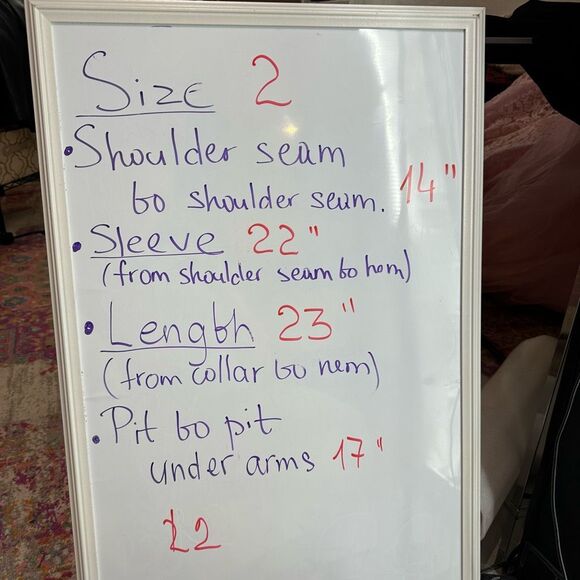 Size 2
• Shoulder seam
to shoulder seam. 14"
• Sleeve 22"
(from shoulder seam to hem)
• Length 23"
(from collar to hem)
• Pit to pit
under arms 17"
22